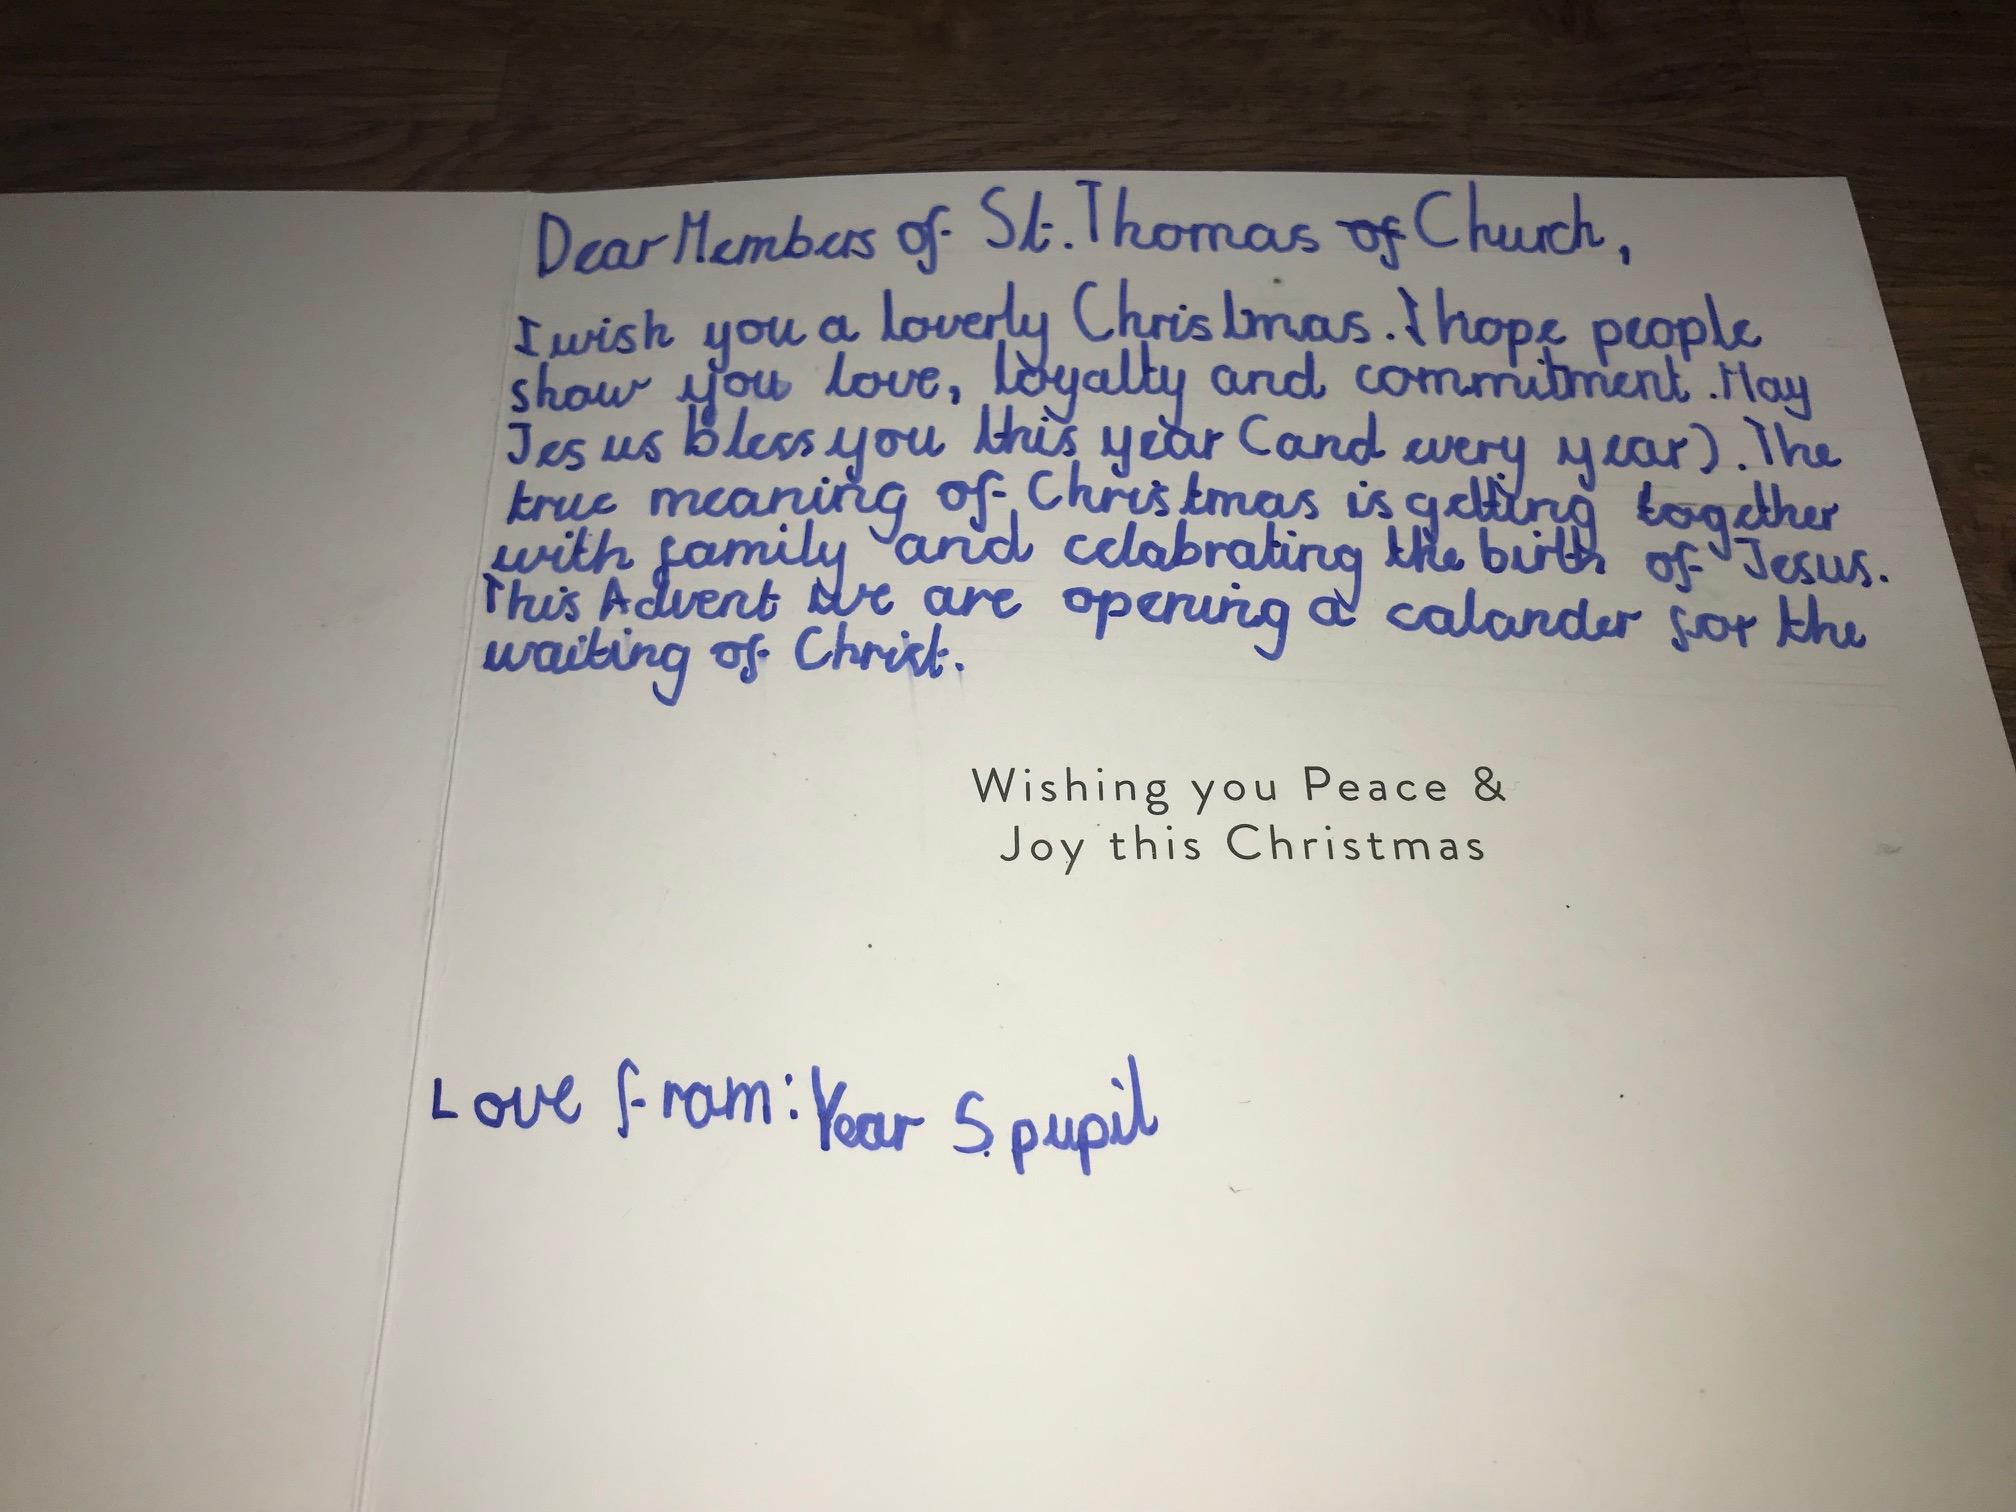 Dear Members of St. Thomas of Church,
I wish you a loverly Christmas. I hope people
show you love, loyalty and commitment. May
Jesus bless you this year (and every year). The
true meaning of Christmas is getting together
with family and celabrating the birth of Jesus.
This Advent we are opening a calander for the
waiting of Christ.
Wishing you Peace &
Joy this Christmas
Love from: Year 5 pupil